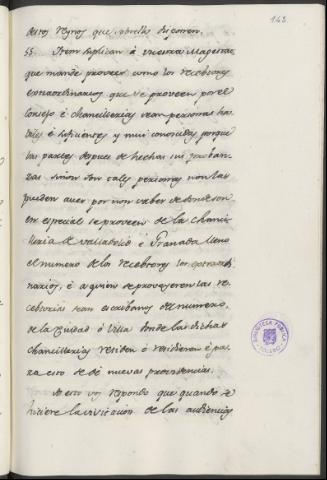 143
destos Reynos que sobrello disponen.
55. Item suplican á vuestra Magestad
que mande proveer como los recebtores
extraordinarios que se proveen por el
Consejo é chancillerias sean personas ha
biles é suficientes y mui conocidas porque
las partes despues de hechas sus proban-
zas sino son tales personas non las
pueden aver por non saber de donde son
en especial se proveen de la chanci
lleria de Valladolid é Granada lleno
el numero de los recebtores los extraordi
narios, é á quien se proveyeren las re-
cebtorias sean escribanos del numero
de la Ciudad ó Villa donde las dichas
Chancillerias residen ó residieren é pa
ra esto se dé nuevas provisiones.
A esto vos respondo que quando se
hiciere la visitacion de las audiencias
BIBLIOTECA PUBLICA
TOLEDO